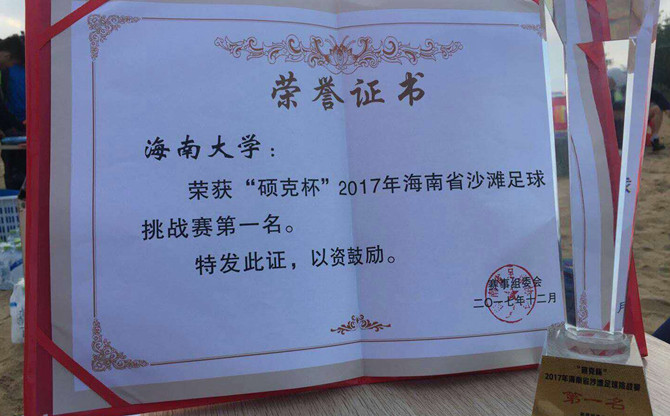 荣誉证书
海南大学：
荣获“硕克杯”2017年海南省沙滩足球
挑战赛第一名。
特发此证，以资鼓励。
赛事组委会
二〇一七年十二月
“硕克杯”
2017年海南省沙滩足球挑战赛
第一名